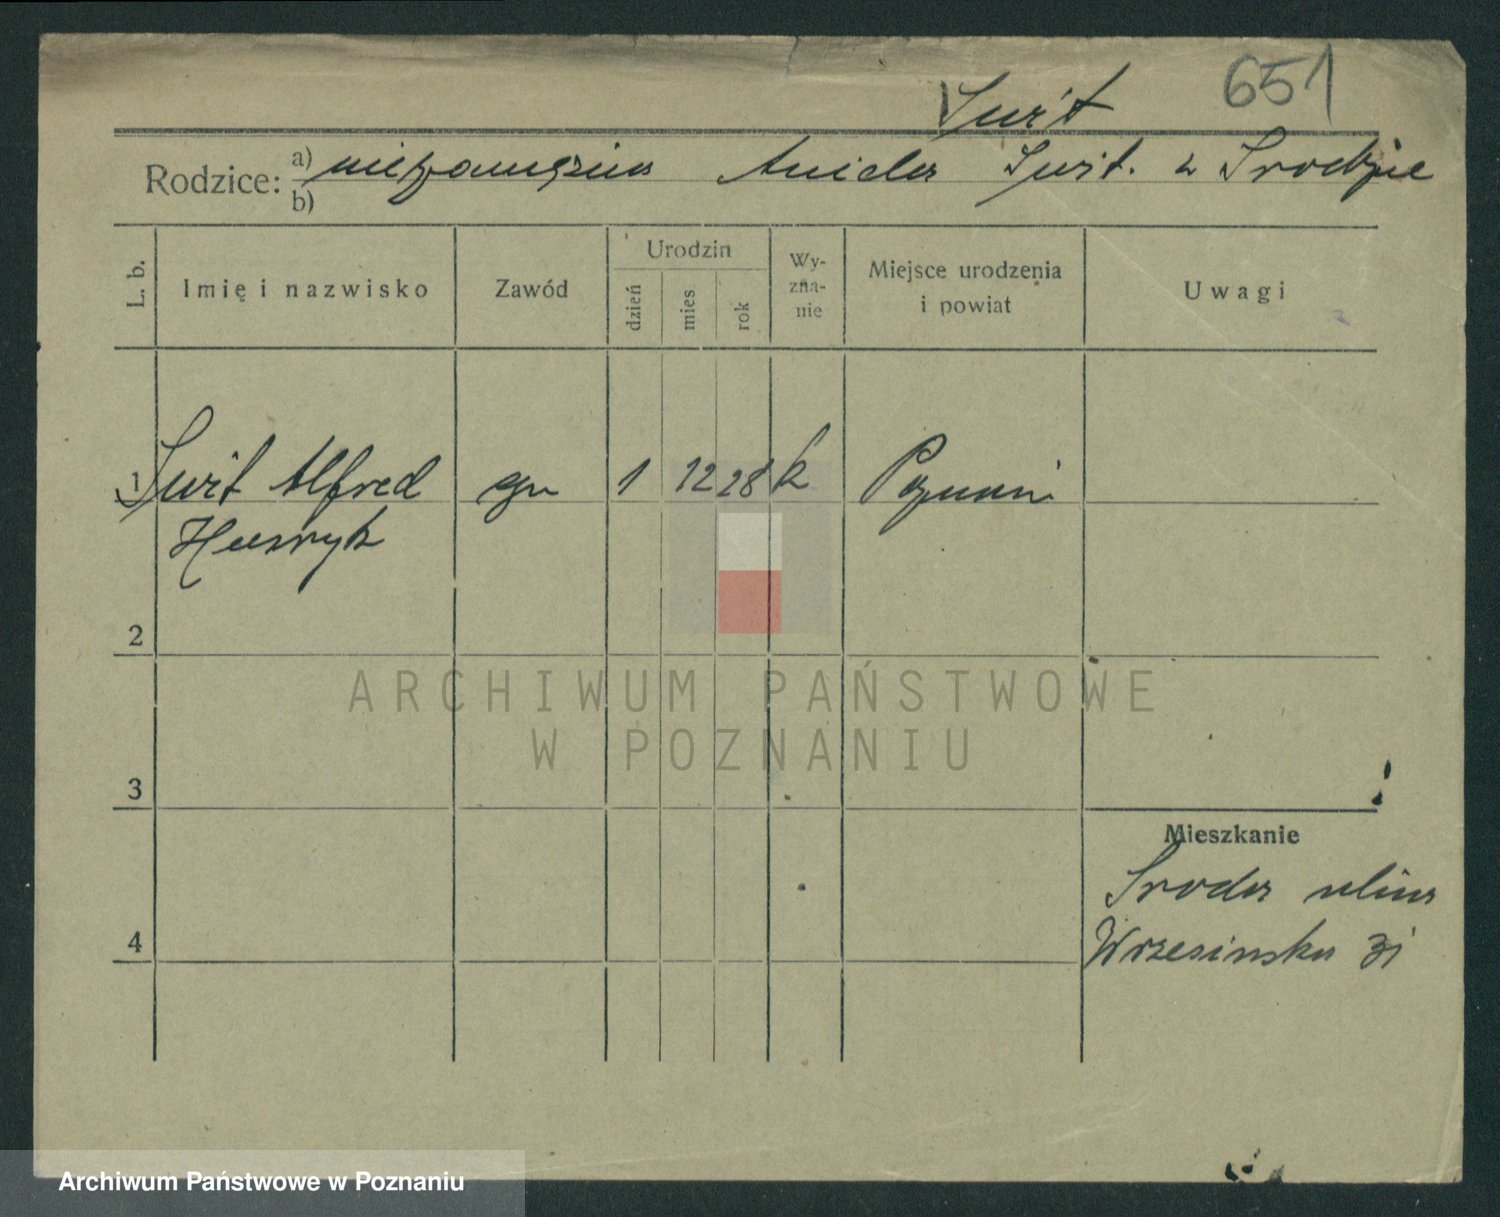 651
Świt
Rodzice: a) niezamężna Aniela Świt. w Środzie
b)
L. b.
Imię i nazwisko
Zawód
Urodzin
dzień
mies
rok
Wy-
zna-
nie
Miejsce urodzenia
i powiat
Uwagi
1 Świt Alfred 1 12 28 k Poznań
Henryk
2
3
4
Mieszkanie
Środa ulica
Wrzesińska
ARCHIWUM PAŃSTWOWE
W POZNANIU
Archiwum Państwowe w Poznaniu